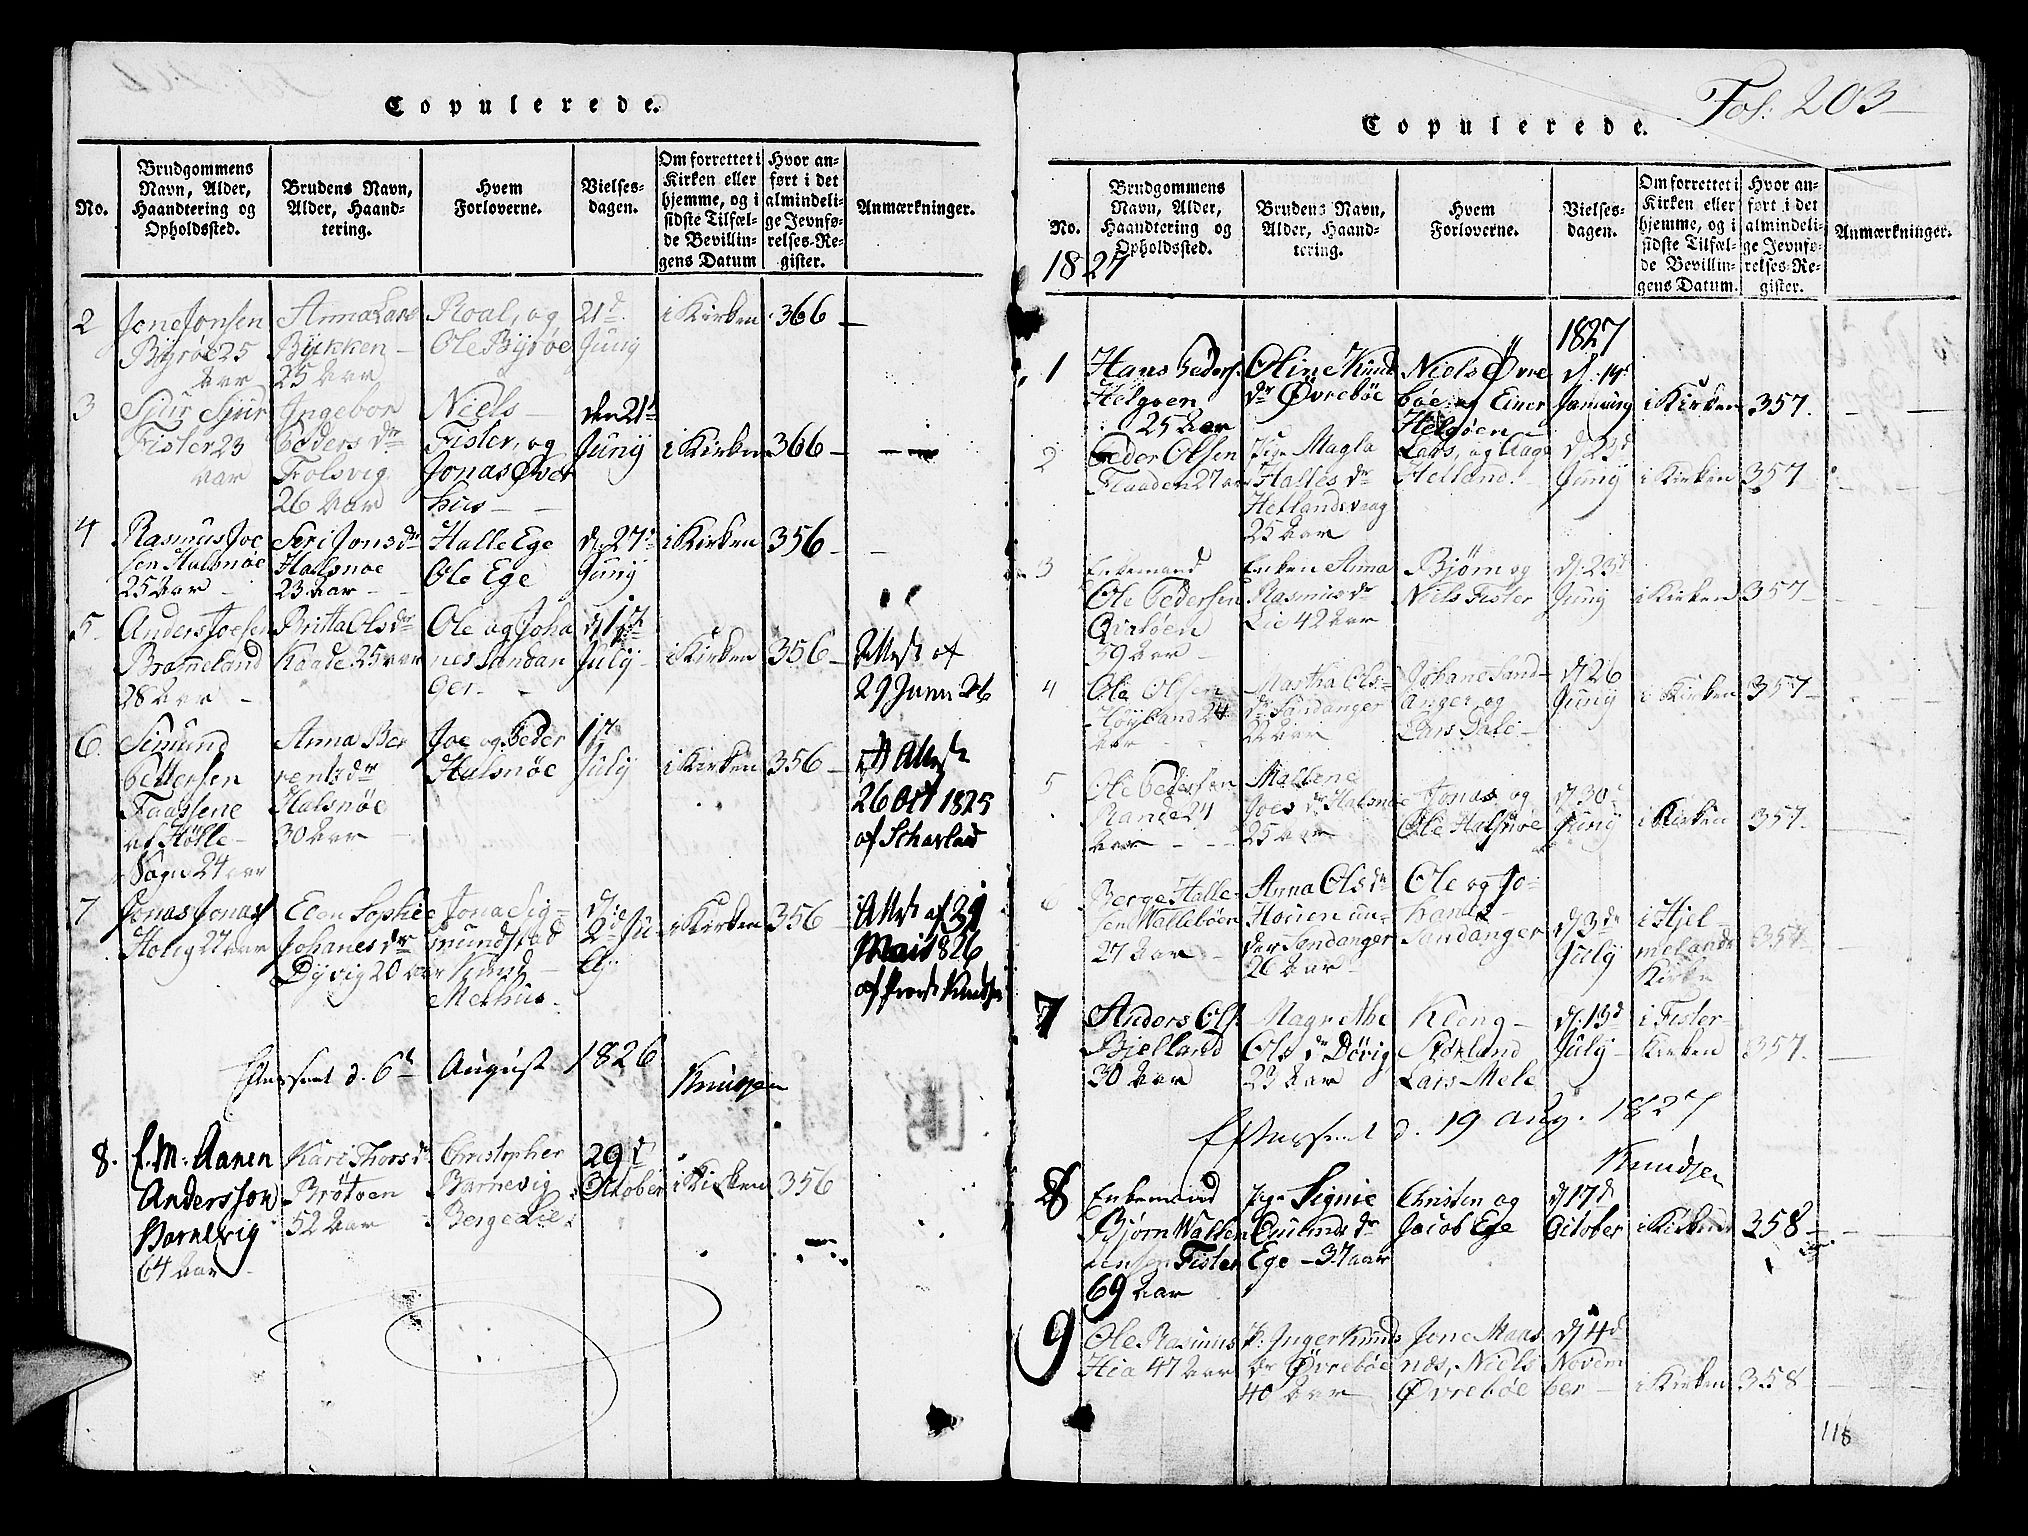 Copulerede.
No.
Brudgommens
Navn, Alder,
Haandtering og
Opholdssted.
Brudens Navn,
Alder, Haand-
tering.
Hvem
Forloverne.
Vielses-
dagen.
Om forrettet i
Kirken eller
hjemme, og i
sidste Tilfæl-
de Bevillin-
gens Datum
Hvor an-
ført i det
almindeli-
ge Jevnfø-
relses-Re-
gister.
Anmærkninger.
2
Jone Jonsen
Byrøe 25
Aar
Anna Lars
Bykken -
25 Aar
Roal, og
Ole Byrøe
21d
Juny
i Kirken
366 -
3
Sjur Sjur
Fister 23
Aar
Ingebor
Peders dr
Frolsvig
26 Aar
Niels -
Fister, og
Jonas Øver
hus -
den 21d
Juny
i Kirken
366 -
4
Rasmus Joe
sen Halsnøe
25 Aar -
Seri Jons dr
Halsnøe
23 Aar -
Halle Ege
Ole Ege
d. 27d
Juny
i Kirken
356 -
5
Anders Joesen
Brameland
28 Aar -
Britta Ols dr
Kaade 25 Aar
Ole og Joha
nes Sandan
ger -
July
i Kirken
356 -
Attest af
29 Juni 26
6
Simund
Pettersen
Faassene
af Hølle -
Sogn 24 aar
Anna Ber
rents dr
Halsnøe
30 Aar
Joe og Peder
Halsnøe
17
July
i Kirken
356 -
Attest
26 Oct 1825
af
7
Jonas Jonas
27 aar
Elen Sophie
Johanes dr
Dyvig 20 Aar
Jona Sig-
mundstad
Knud -
Melhus.
i Kirken
356 -
Attest af 29
Mai 1826
af Knudsen
Efterseet d. 6t August 1826
Knudsen
8.
E. M: Aanen
Andersson
Barnevig
64 Aar
Kari Thors dr
Brøtoen
52 Aar
Christopher
Barnevig
29d
October
i Kirken
356
Fol: 203
Copulerede.
No.
Brudgommens
Navn, Alder,
Haandtering og
Opholdssted.
Brudens Navn,
Alder, Haand-
tering.
Hvem
Forloverne.
Vielses-
dagen.
Om forrettet i
Kirken eller
hjemme, og i
sidste Tilfæl-
de Bevillin-
gens Datum.
Hvor an-
ført i det
almindeli-
ge Jevnfø-
relses-Re-
gister.
Anmærkninger.
1827
1827
1
Hans Peders.
Helgøen
25 Aar
Oline Knud
dr Øvrebøe
Niels Øvre
bøe og Einer
Helgøen
Januar
i Kirken
357.
2
Peder Olsen
Flaaden 27 aar
Pige Magla
Halles dr
Hellandsvaag
25 Aar
Lars, og Aage
Helland
d 23d
Juny
i Kirken
357
3
Enkemand
Ole Pedersen
59 Aar -
Enken Anna
Rasmus dr
Lie 42 Aar
Bjørn og
Niels Fister
d: 23d
Juny
i Kirken
357 -
4
Ole Olsen
Høyland 24
Aar
Martha Ols-
dr Sandanger
22 Aar
Johane Sand-
anger og
Lars Dale -
d 26
Juny
i Kirken
357 -
5
Ole Pedersen
Rande 24
Aar
Mallene
Joes dr Halsnøe
25 Aar
Jonas og
Ole Halsnøe
d 30d
Juny
i Kirken
357 -
6
Berge Halle-
sen Wallebøen
27 Aar -
Anna Ols dr
Houen un-
der Sandanger
26 Aar -
Ole og Jo-
hanes -
Sandanger
d 3d
July
i Hjel-
melands
Kirke
357
7
Anders Ols
Bjelland
30 Aar
Magrethe
Ols dr Døvig
23 Aar
Kleng -
Lars Mele
d: 13d
July -
i Fister
Kirken
357.
Efterseet d. 19 Aug. 1827
Knudsen
8
Enkemand
Bjørn
Fister
69 Aar
Pige Signie
Ege - 37 aar
Christen og
Jacob Ege
d 17d
October
i Kirken
358 -
9
Ole Rasmus
Hia 47 Aar
P. Inger Knuds
dr Øvrebøe
40 Aar -
Jone Maas
næs, Niels
Øvrebøe
d 4d
Novem
ber -
i Kirken
358
118